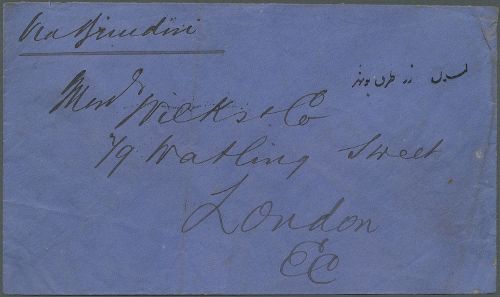 Via Brindisi
Messrs Wicks & Co
79 Watling Street
London
EC